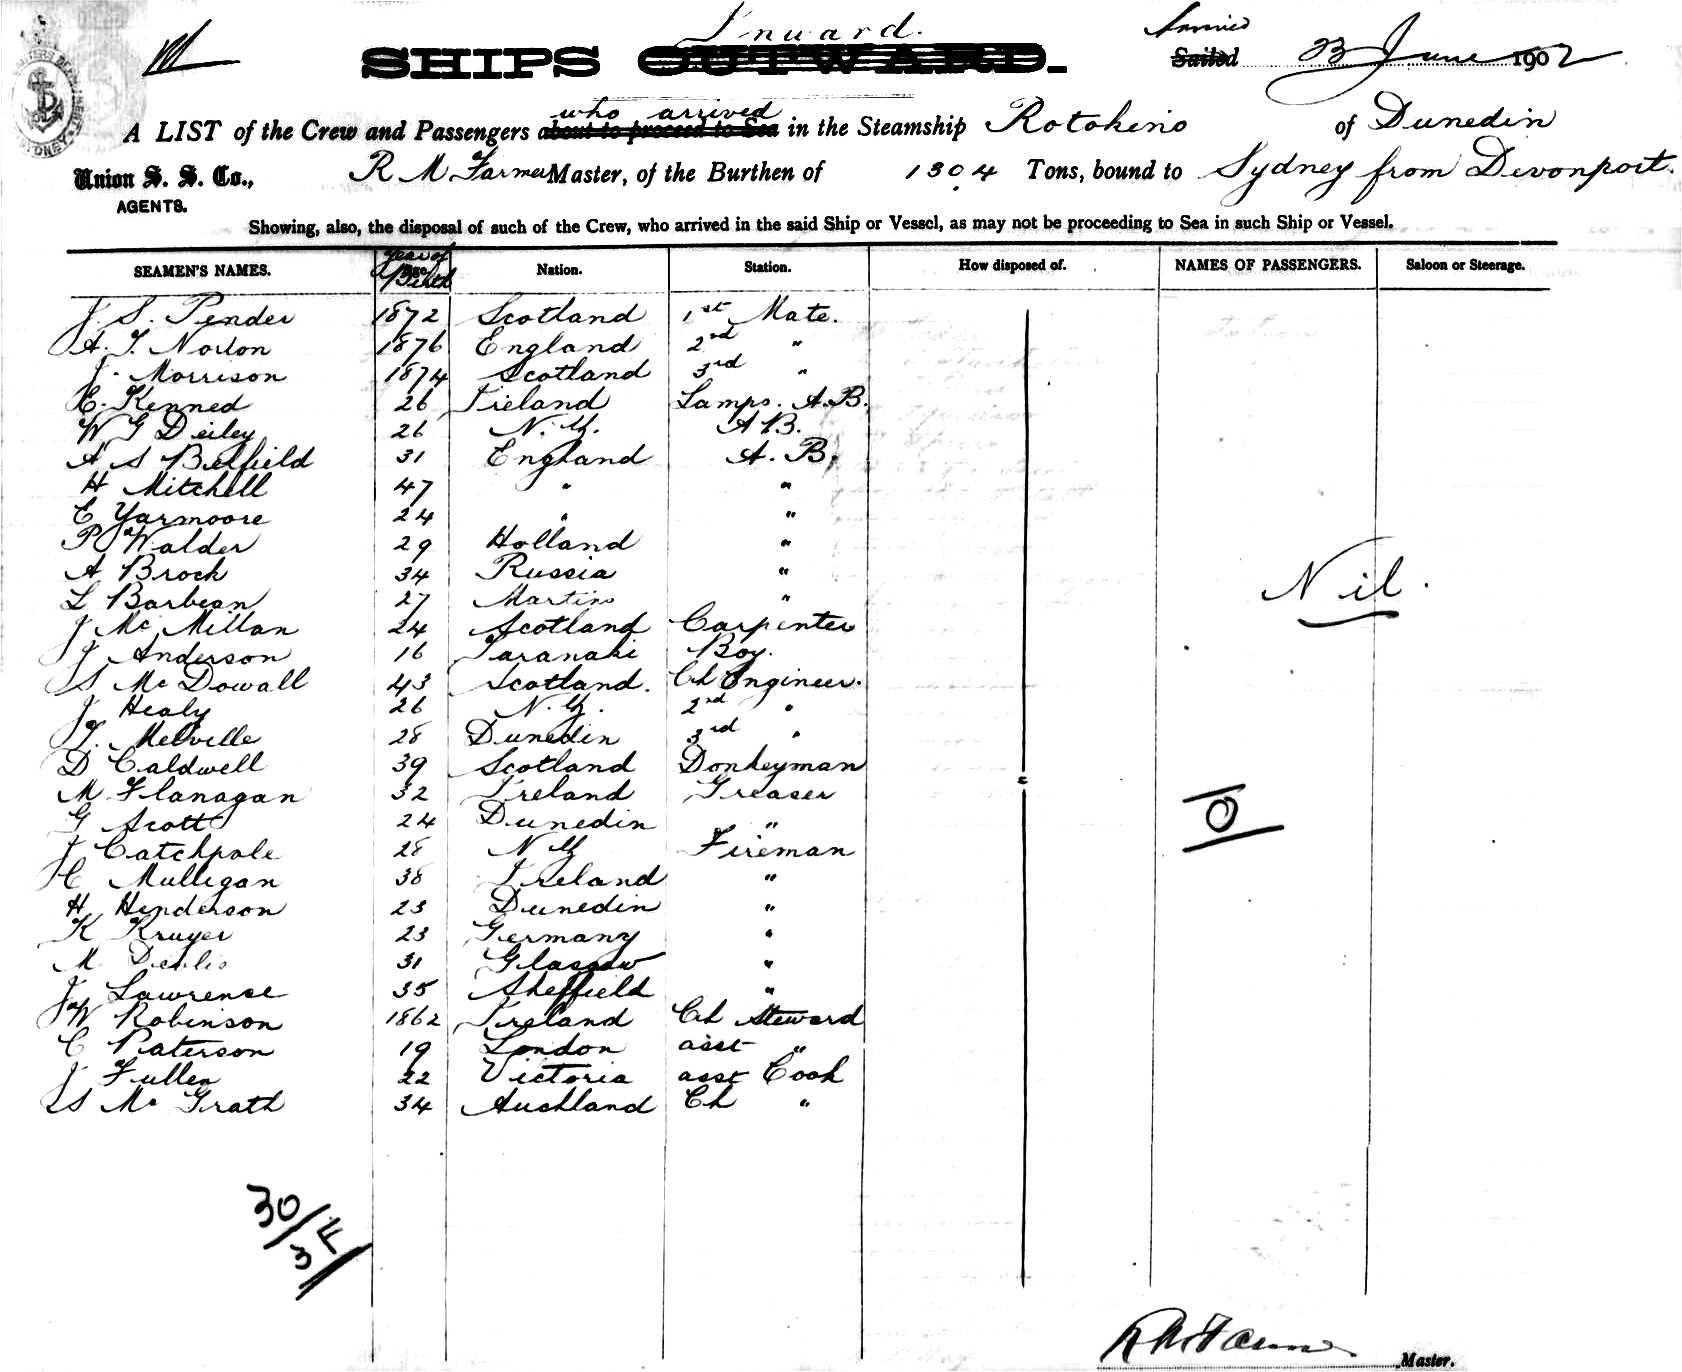 Inward.
SHIPS OUTWARD.
Arrived
Sailed 23 June 1902
who arrived
A LIST of the Crew and Passengers about to proceed to Sea in the Steamship Rotokino of Dunedin
Union S. S. Co., R M Farmer Master, of the Burthen of 1304 Tons, bound to Sydney from Devonport.
AGENTS.
Showing, also, the disposal of such of the Crew, who arrived in the said Ship or Vessel, as may not be proceeding to Sea in such Ship or Vessel.
SEAMEN'S NAMES. Year of Birth Nation. Station. How disposed of. NAMES OF PASSENGERS. Saloon or Steerage.
J. S. Pender 1872 Scotland 1st Mate.
A. T. Norton 1876 England 2nd "
J. Morrison 1874 Scotland 3rd "
E. Kenned 26 Ireland Lamps. A.B.
W G Deiley 26 N.Z. A B.
A S Belfield 31 England A. B.
H Mitchell 47 " "
E Yarmoore 24 " "
P Walder 29 Holland "
A Brock 34 Russia "
Nil.
L Barbean 27 Martins "
J Mc Millan 24 Scotland Carpenter
J Anderson 16 Taranaki Boy.
S Mc Dowall 43 Scotland. Ch Engineer.
J Healy 26 N.Z. 2nd "
T. Melville 28 Dunedin 3rd "
D Caldwell 39 Scotland Donkeyman
M Flanagan 32 Ireland Greaser
G Scott 24 Dunedin "
0
J Catchpole 28 N Z Fireman
C Mulligan 38 Ireland "
H Henderson 23 Dunedin "
K Kruyer 23 Germany "
M 31 Glasgow "
J Lawrense 35 Sheffield "
W Robinson 1862 Ireland Ch Steward
C Paterson 19 London asst "
J Fuller 22 Victoria asst Cook
S Mc Grath 34 Auckland Ch "
30/3F
R M Farmer
Master.